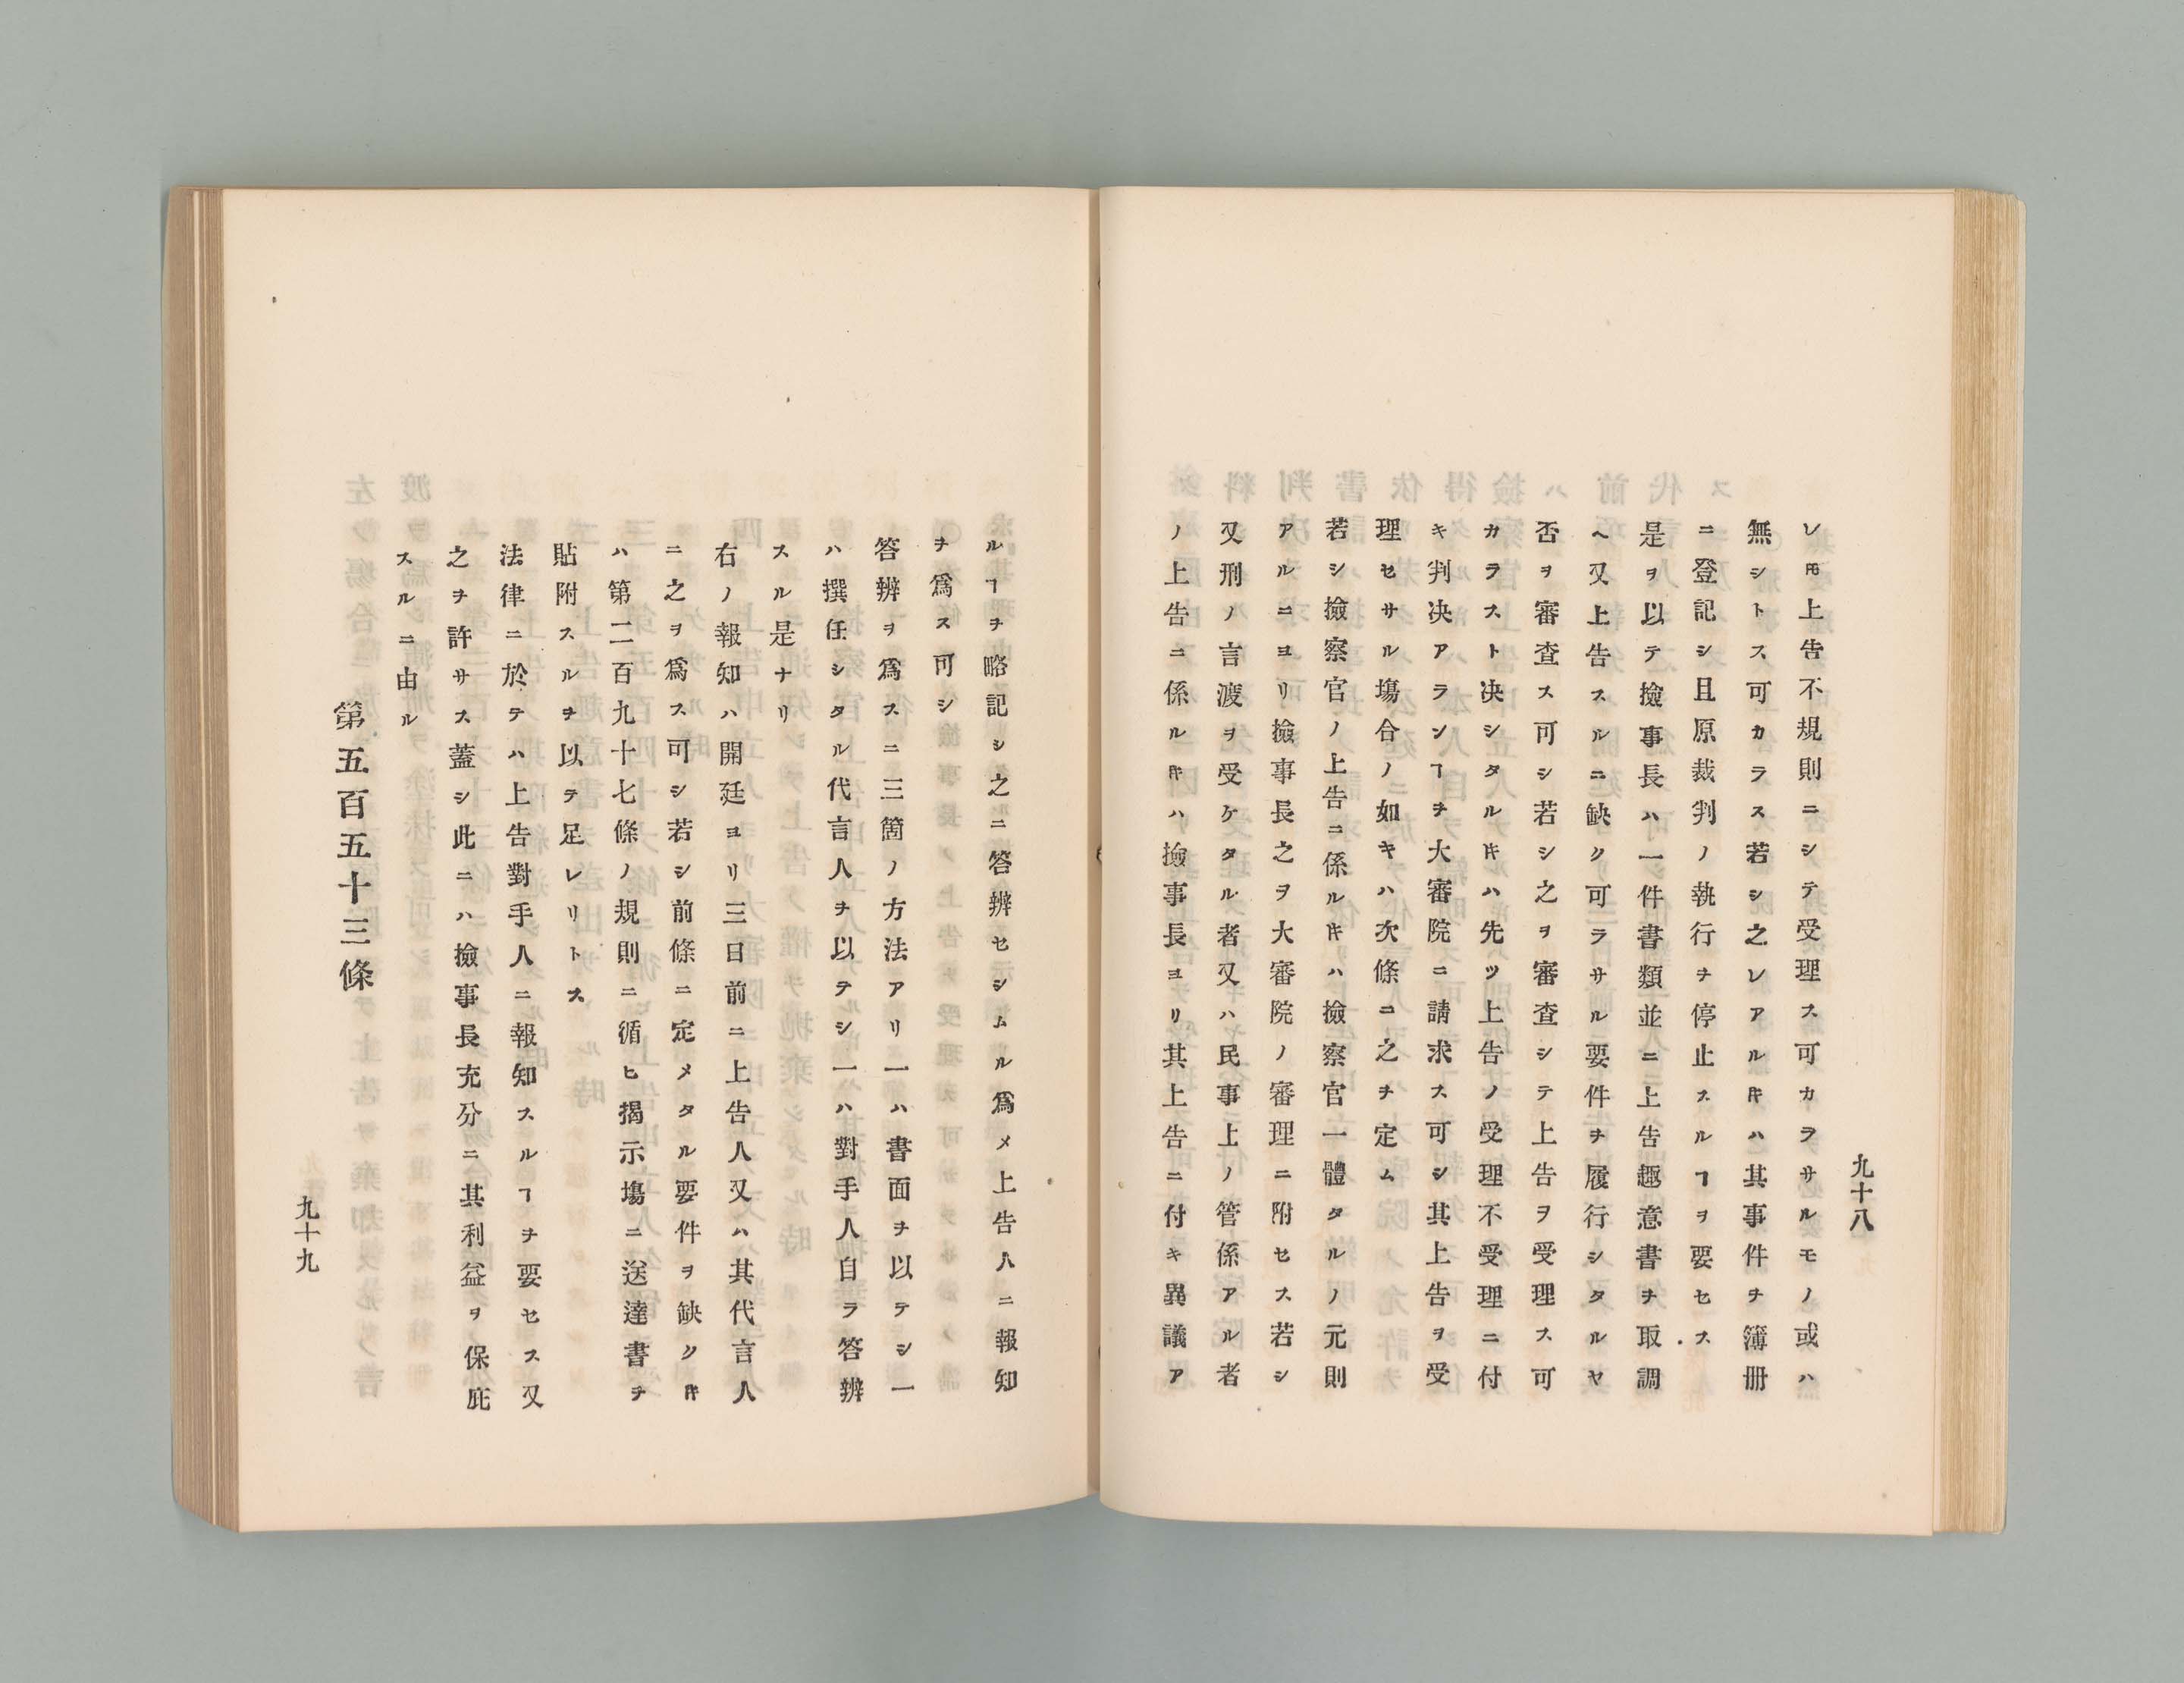 九十八
レ𪜈上告不規則ニシテ受理ス可カラサルモノ或ハ
無シトス可カラス若シ之レアルㇳキハ其事件ヲ簿册
ニ登記シ且原裁判ノ執行ヲ停止スルヿヲ要セス
是ヲ以テ撿事長ハ一件書類並ニ上告趣意書ヲ取調
ヘ又上告スルニ缺ク可ラサル要件ヲ履行シタルヤ
否ヲ審査ス可シ若シ之ヲ審査シテ上告ヲ受理ス可
カラスト决シタルㇳキハ先ツ上告ノ受理不受理ニ付
キ判决アランヿヲ大審院ニ請求ス可シ其上告ヲ受
理セサル塲合ノ如キハ次條ニ之ヲ定ム
若シ撿察官ノ上告ニ係ルㇳキハ撿察官一體タルノ元則
アルニヨリ撿事長之ヲ大審院ノ審理ニ附セス若シ
又刑ノ言渡ヲ受ケタル者又ハ民事上ノ管係アル者
ノ上告ニ係ルㇳキハ撿事長ヨリ其上告ニ付キ異議ア
ルヿヲ略記シ之ニ答辨セシムル爲メ上告人ニ報知
ヲ爲ス可シ
答辨ヲ爲スニ三箇ノ方法アリ一ハ書面ヲ以テシ一
ハ撰任シタル代言人ヲ以テシ一ハ對手人自ラ答辨
スル是ナリ
右ノ報知ハ開廷ヨリ三日前ニ上告人又ハ其代言人
ニ之ヲ爲ス可シ若シ前條ニ定メタル要件ヲ缺クㇳキ
ハ第二百九十七條ノ規則ニ循ヒ揭示塲ニ送達書ヲ
貼附スルヲ以テ足レリトス
法律ニ於テハ上告對手人ニ報知スルヿヲ要セス又
之ヲ許サス蓋シ此ニハ撿事長充分ニ其利益ヲ保庇
スルニ由ル
第五百五十三條
九十九